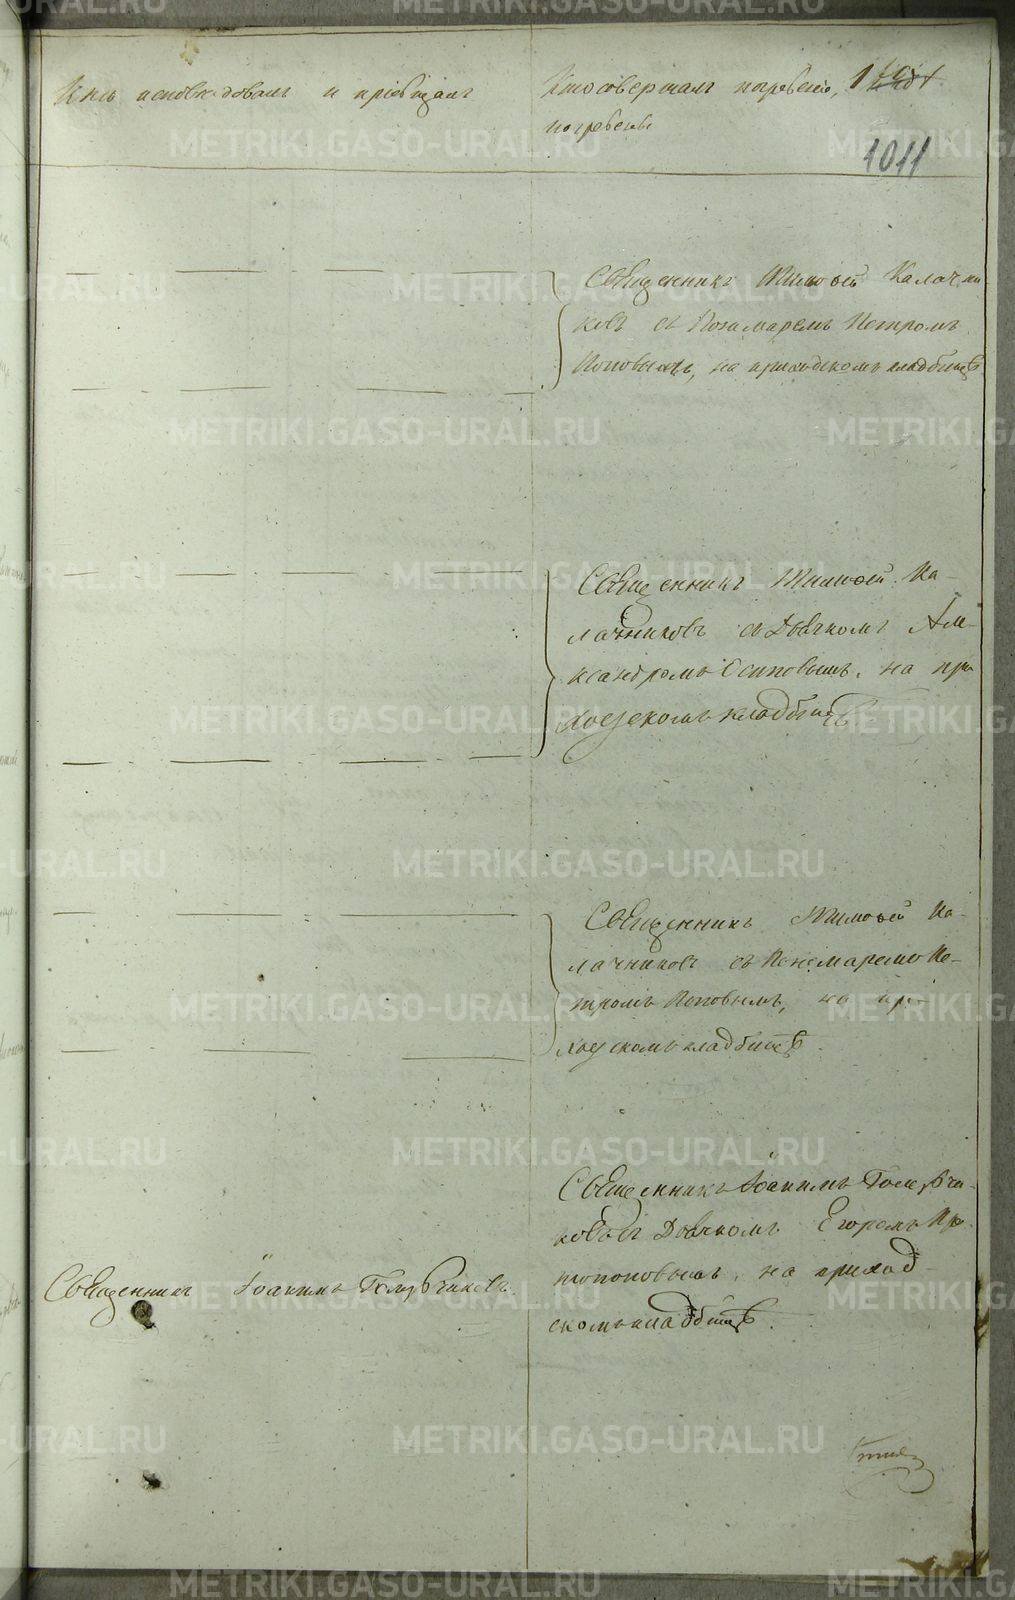 Кто исповѣдовалъ и пріобщалъ
Кто совершалъ погребеніе,
погребены
1011
Священникъ Тимоѳей Калачни-
ковъ съ Пономаремъ Петромъ
Поповымъ, на приходскомъ кладбищѣ
Священникъ Тимоѳей Ка-
лачниковъ съ Дьячкомъ Але-
ксандромъ Осиповымъ, на при
ходскомъ кладбищѣ
Священникъ Тимоѳей Ка-
лачниковъ съ Пономаремъ Пе-
тромъ Поповымъ, на при-
ходскомъ кладбищѣ.
Священникъ Іоакимъ Голубчи-
ковъ съ Дьячкомъ Егоромъ Про-
топоповымъ, на приход-
скомъ кладбищѣ.
Священникъ Іоакимъ Голубчиковъ.
METRIKI.GASO-URAL.RU